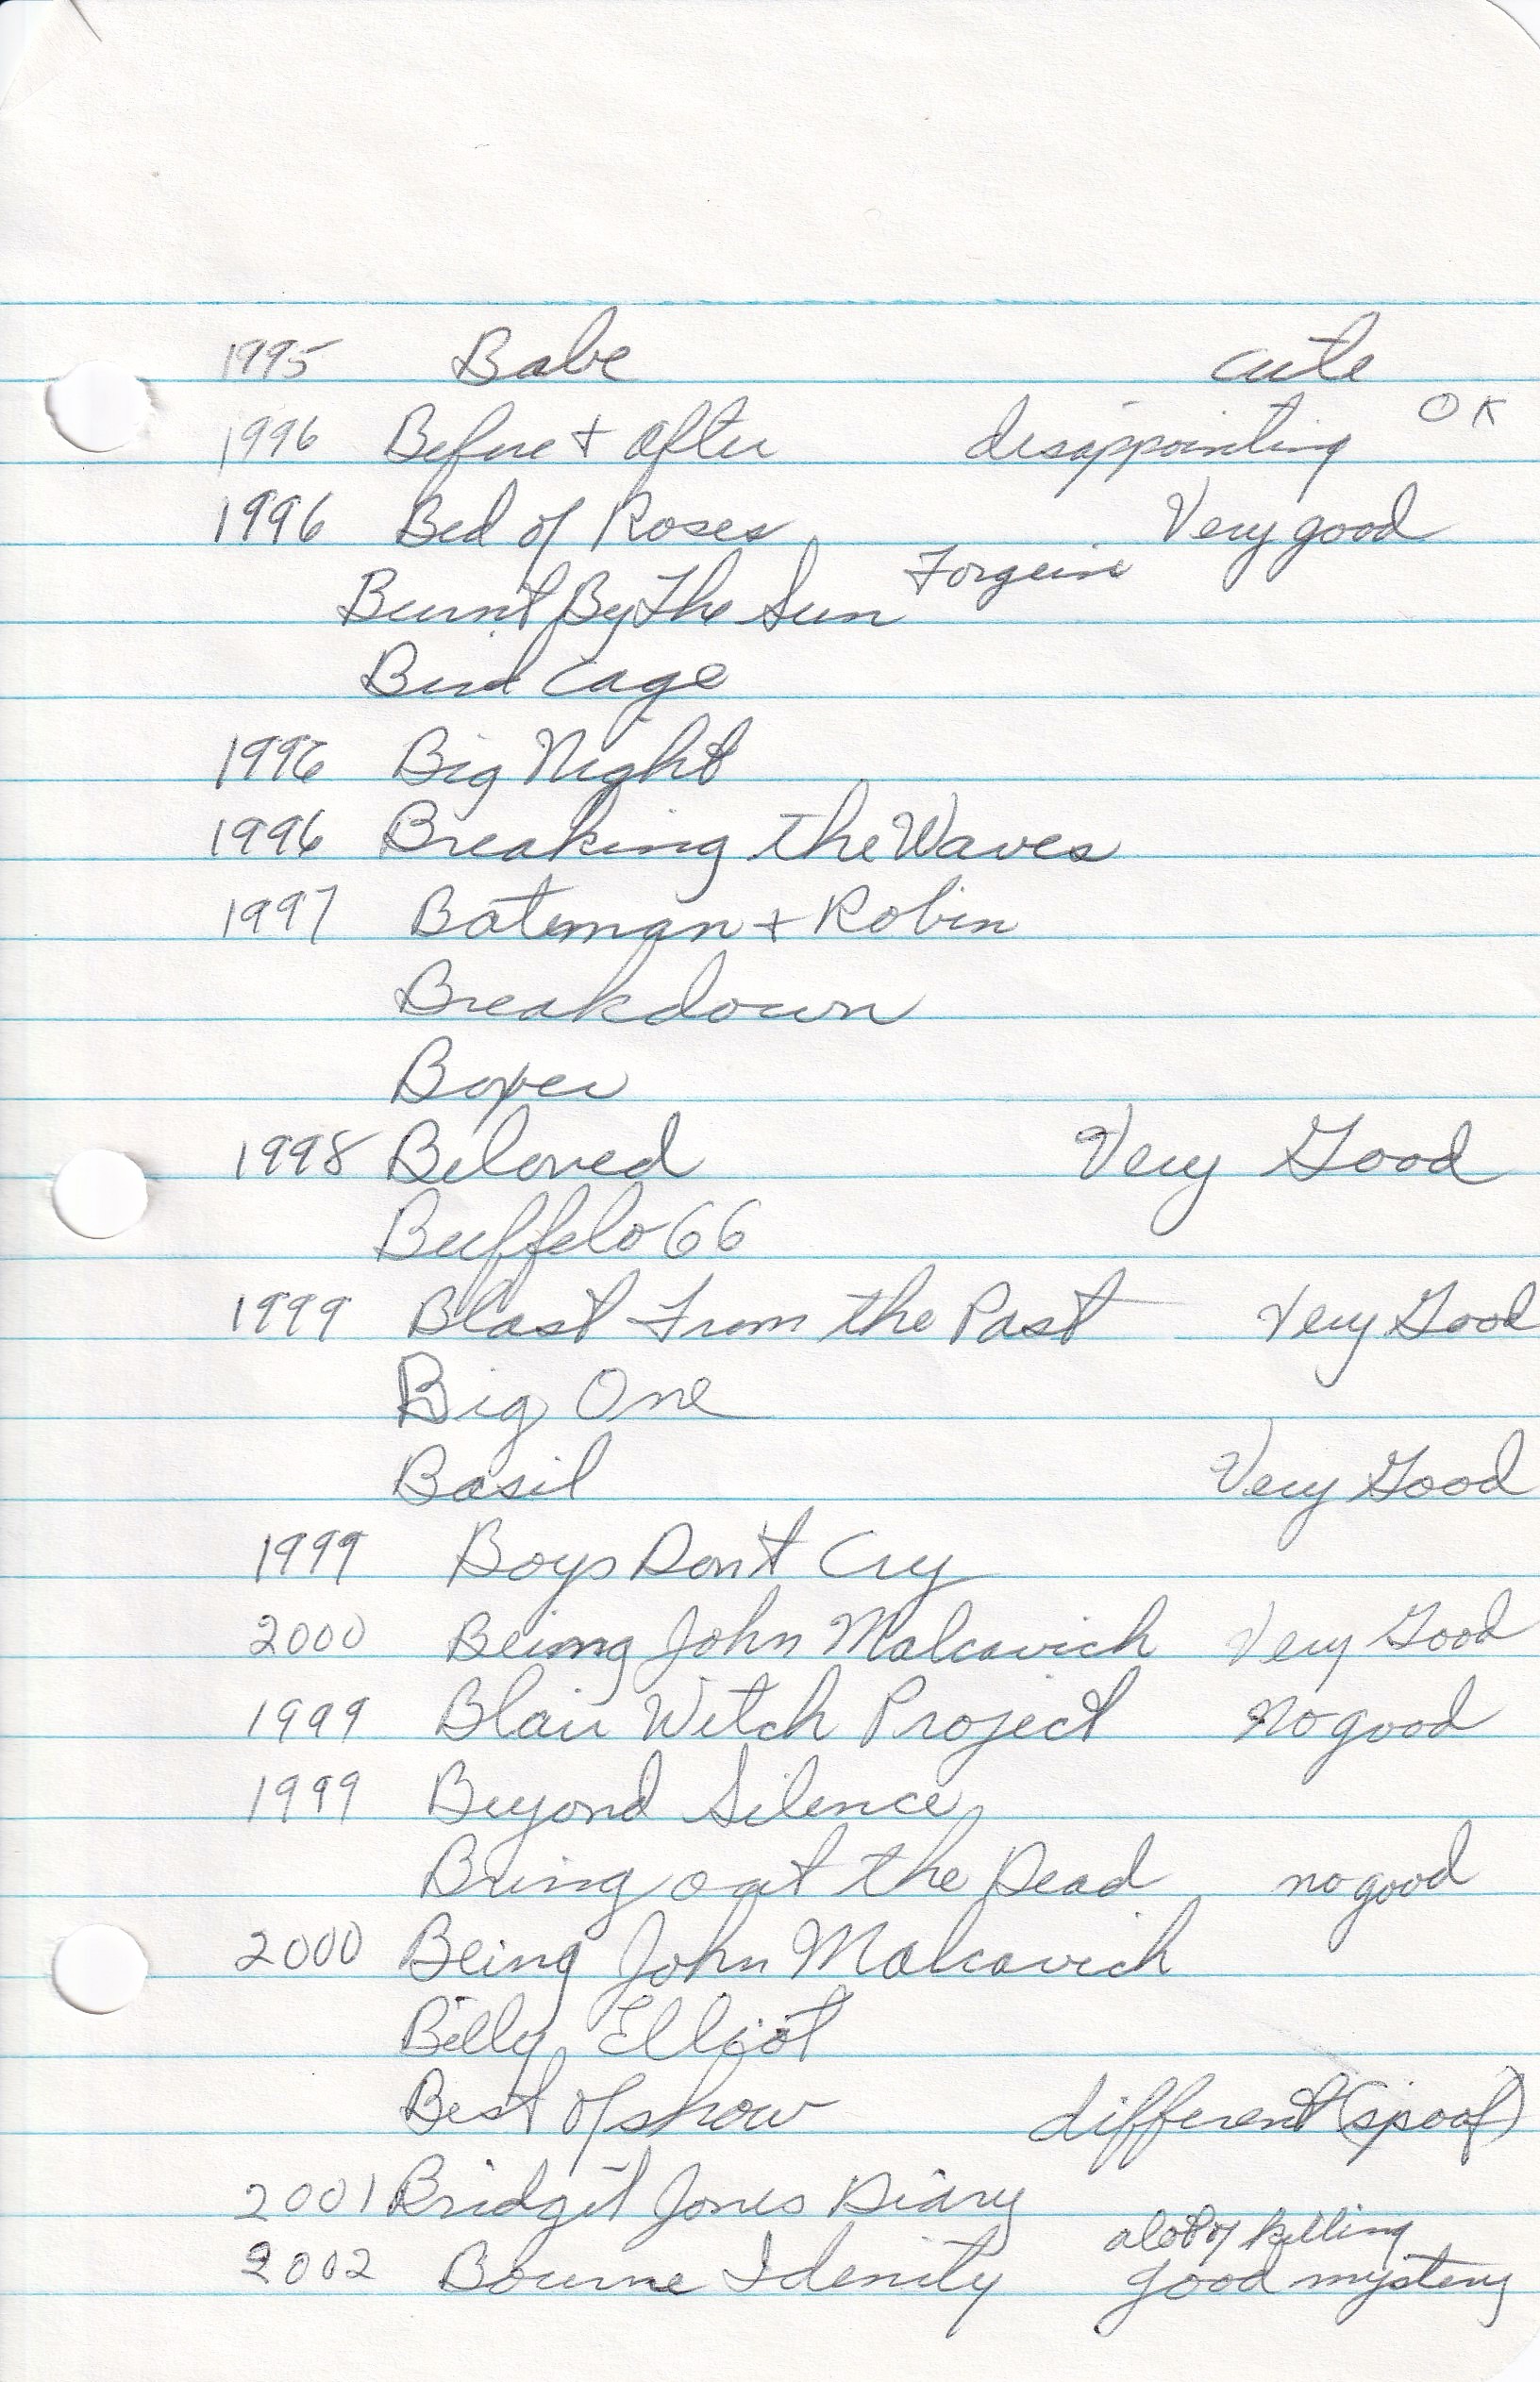 1995 Babe cute
1996 Before + After disappointing OK
1996 Bed of Roses Very good
Burnt By The Sun Forgein
Bird Cage
1996 Big Night
1996 Breaking the Waves
1997 Bateman + Robin
Breakdown
Boxer
1998 Beloved Very Good
Buffelo 66
1999 Blast From the Past Very Good
Big One
Basil Very Good
1999 Boys Don't Cry
2000 Being John Malcavich Very Good
1999 Blair Witch Project No good
1999 Beyond Silence
Bring out the Dead no good
2000 Being John Malcavich
Billy Elliot
Best of show different (spoof)
2001 Bridget Jones Diary
2002 Bourne Idenity alot of killing
good mystery